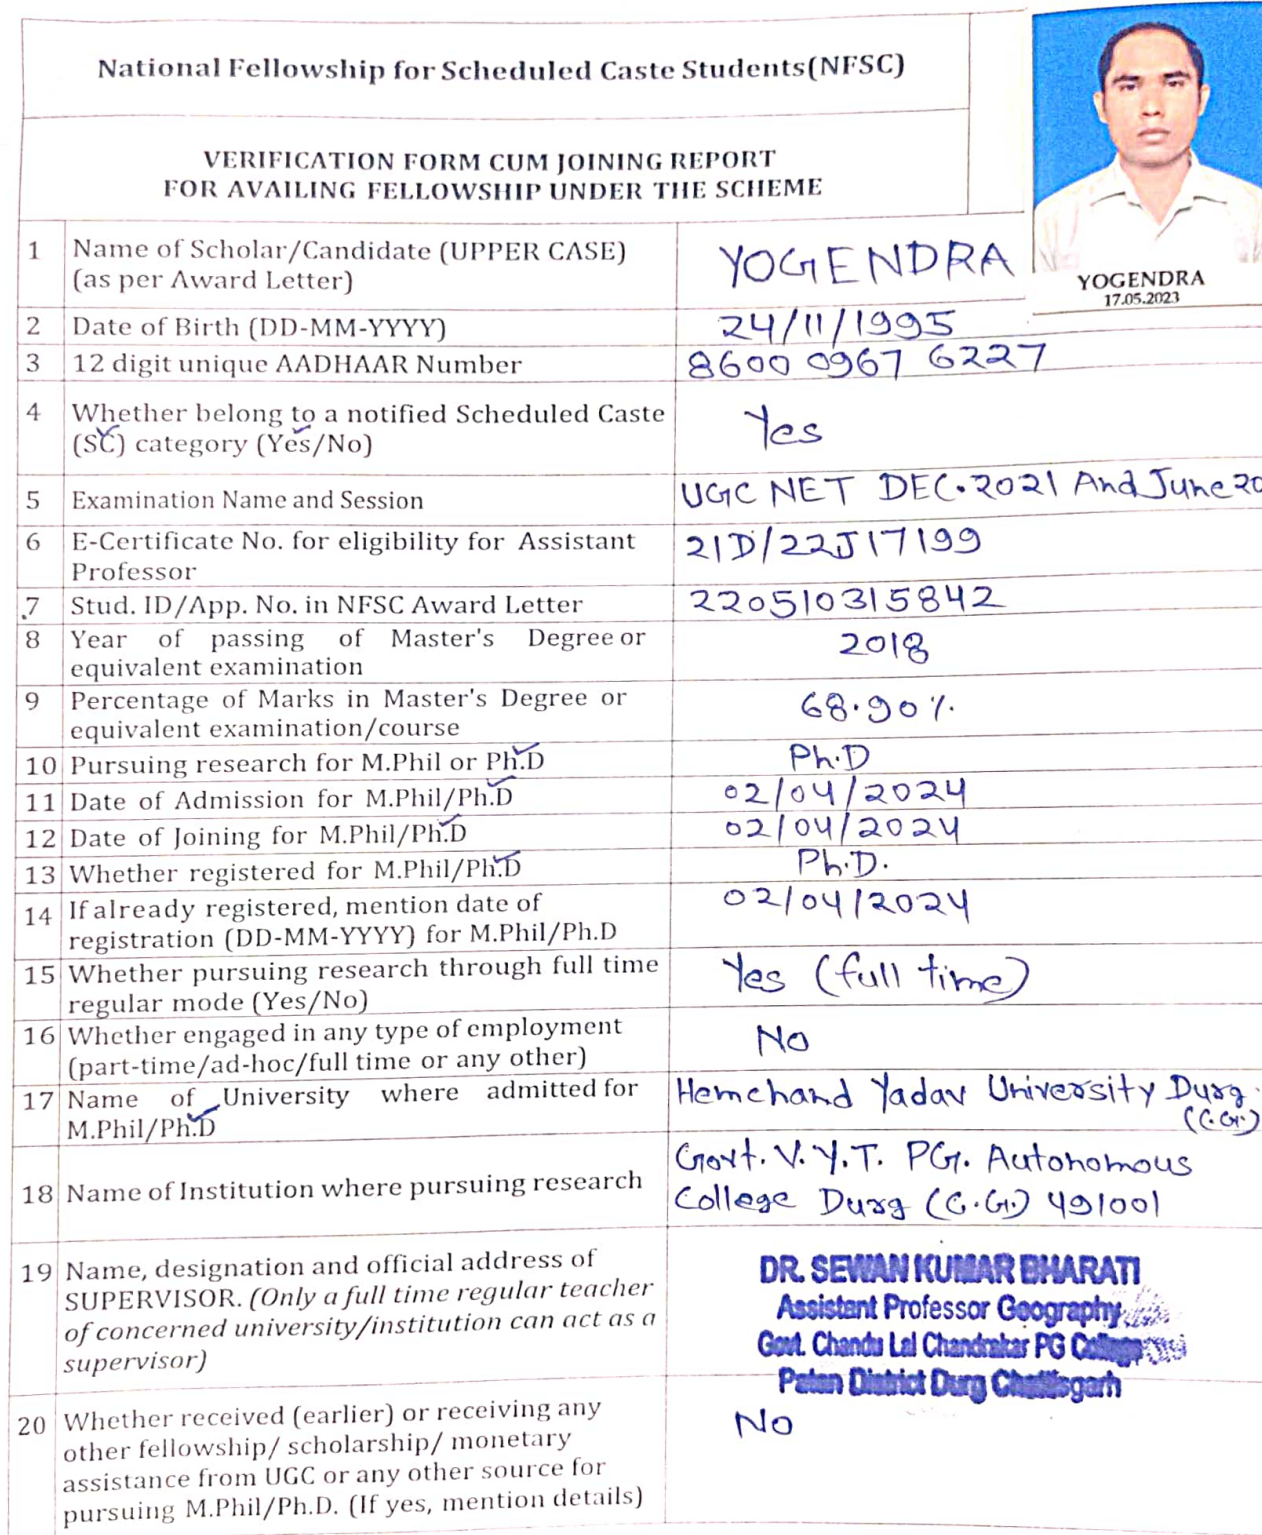 National Fellowship for Scheduled Caste Students(NFSC)
VERIFICATION FORM CUM JOINING REPORT
FOR AVAILING FELLOWSHIP UNDER THE SCHEME
YOGENDRA
17.05.2023
1 Name of Scholar/Candidate (UPPER CASE) YOGENDRA
(as per Award Letter)
2 Date of Birth (DD-MM-YYYY) 24/11/1995
3 12 digit unique AADHAAR Number 8600 0967 6227
4 Whether belong to a notified Scheduled Caste Yes
(SC) category (Yes/No)
5 Examination Name and Session UGC NET DEC.2021 And June 20
6 E-Certificate No. for eligibility for Assistant 21D/22J17199
Professor
7 Stud. ID/App. No. in NFSC Award Letter 220510315842
8 Year of passing of Master's Degree or 2018
equivalent examination
9 Percentage of Marks in Master's Degree or 68.90%.
equivalent examination/course
10 Pursuing research for M.Phil or Ph.D Ph.D
11 Date of Admission for M.Phil/Ph.D 02/04/2024
12 Date of Joining for M.Phil/Ph.D 02/04/2024
13 Whether registered for M.Phil/Ph.D Ph.D.
14 If already registered, mention date of 02/04/2024
registration (DD-MM-YYYY) for M.Phil/Ph.D
15 Whether pursuing research through full time Yes (full time)
regular mode (Yes/No)
16 Whether engaged in any type of employment No
(part-time/ad-hoc/full time or any other)
17 Name of University where admitted for Hemchand Yadav University Durg.
M.Phil/Ph.D (C.G.)
18 Name of Institution where pursuing research Govt. V.Y.T. PG. Autonomous
College Durg (C.G.) 491001
19 Name, designation and official address of
SUPERVISOR. (Only a full time regular teacher
of concerned university/institution can act as a
supervisor)
DR. SEWAN KUMAR BHARATI
Assistant Professor Geography
Govt. Chandu Lal Chandrakar PG College
Patan District Durg Chattisgarh
20 Whether received (earlier) or receiving any No
other fellowship/ scholarship/ monetary
assistance from UGC or any other source for
pursuing M.Phil/Ph.D. (If yes, mention details)